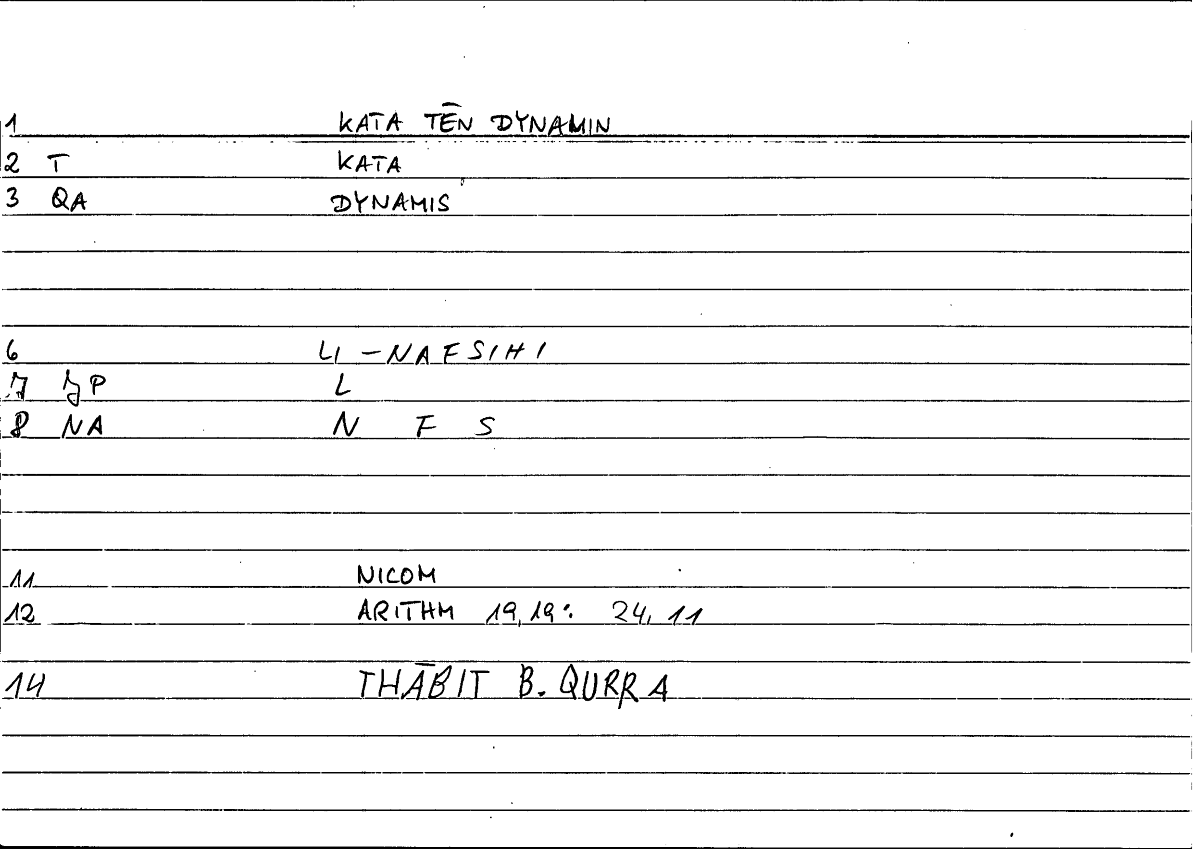 1 KATA TĒN DYNAMIN
2 T KATA
3 QA DYNAMIS
6 LI-NAFSIHI
7 P L
8 NA N F S
11 NICOM
12 ARITHM 19,19: 24,11
14 THĀBIT B. QURRA